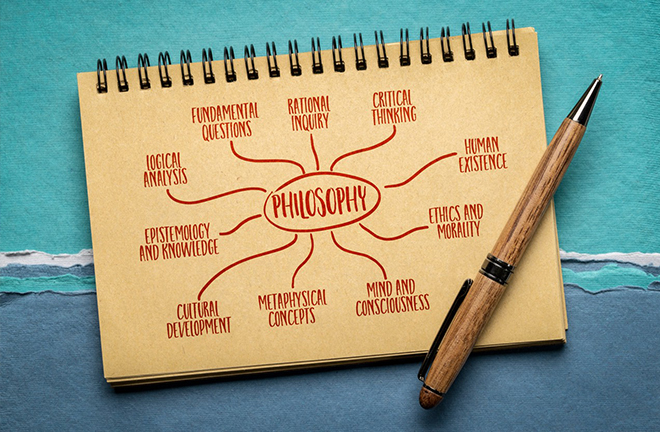 FUNDAMENTAL
QUESTIONS
RATIONAL
INQUIRY
CRITICAL
THINKING
LOGICAL
ANALYSIS
HUMAN
EXISTENCE
PHILOSOPHY
EPISTEMOLOGY
AND KNOWLEDGE
ETHICS AND
MORALITY
CULTURAL
DEVELOPMENT
METAPHYSICAL
CONCEPTS
MIND AND
CONSCIOUSNESS